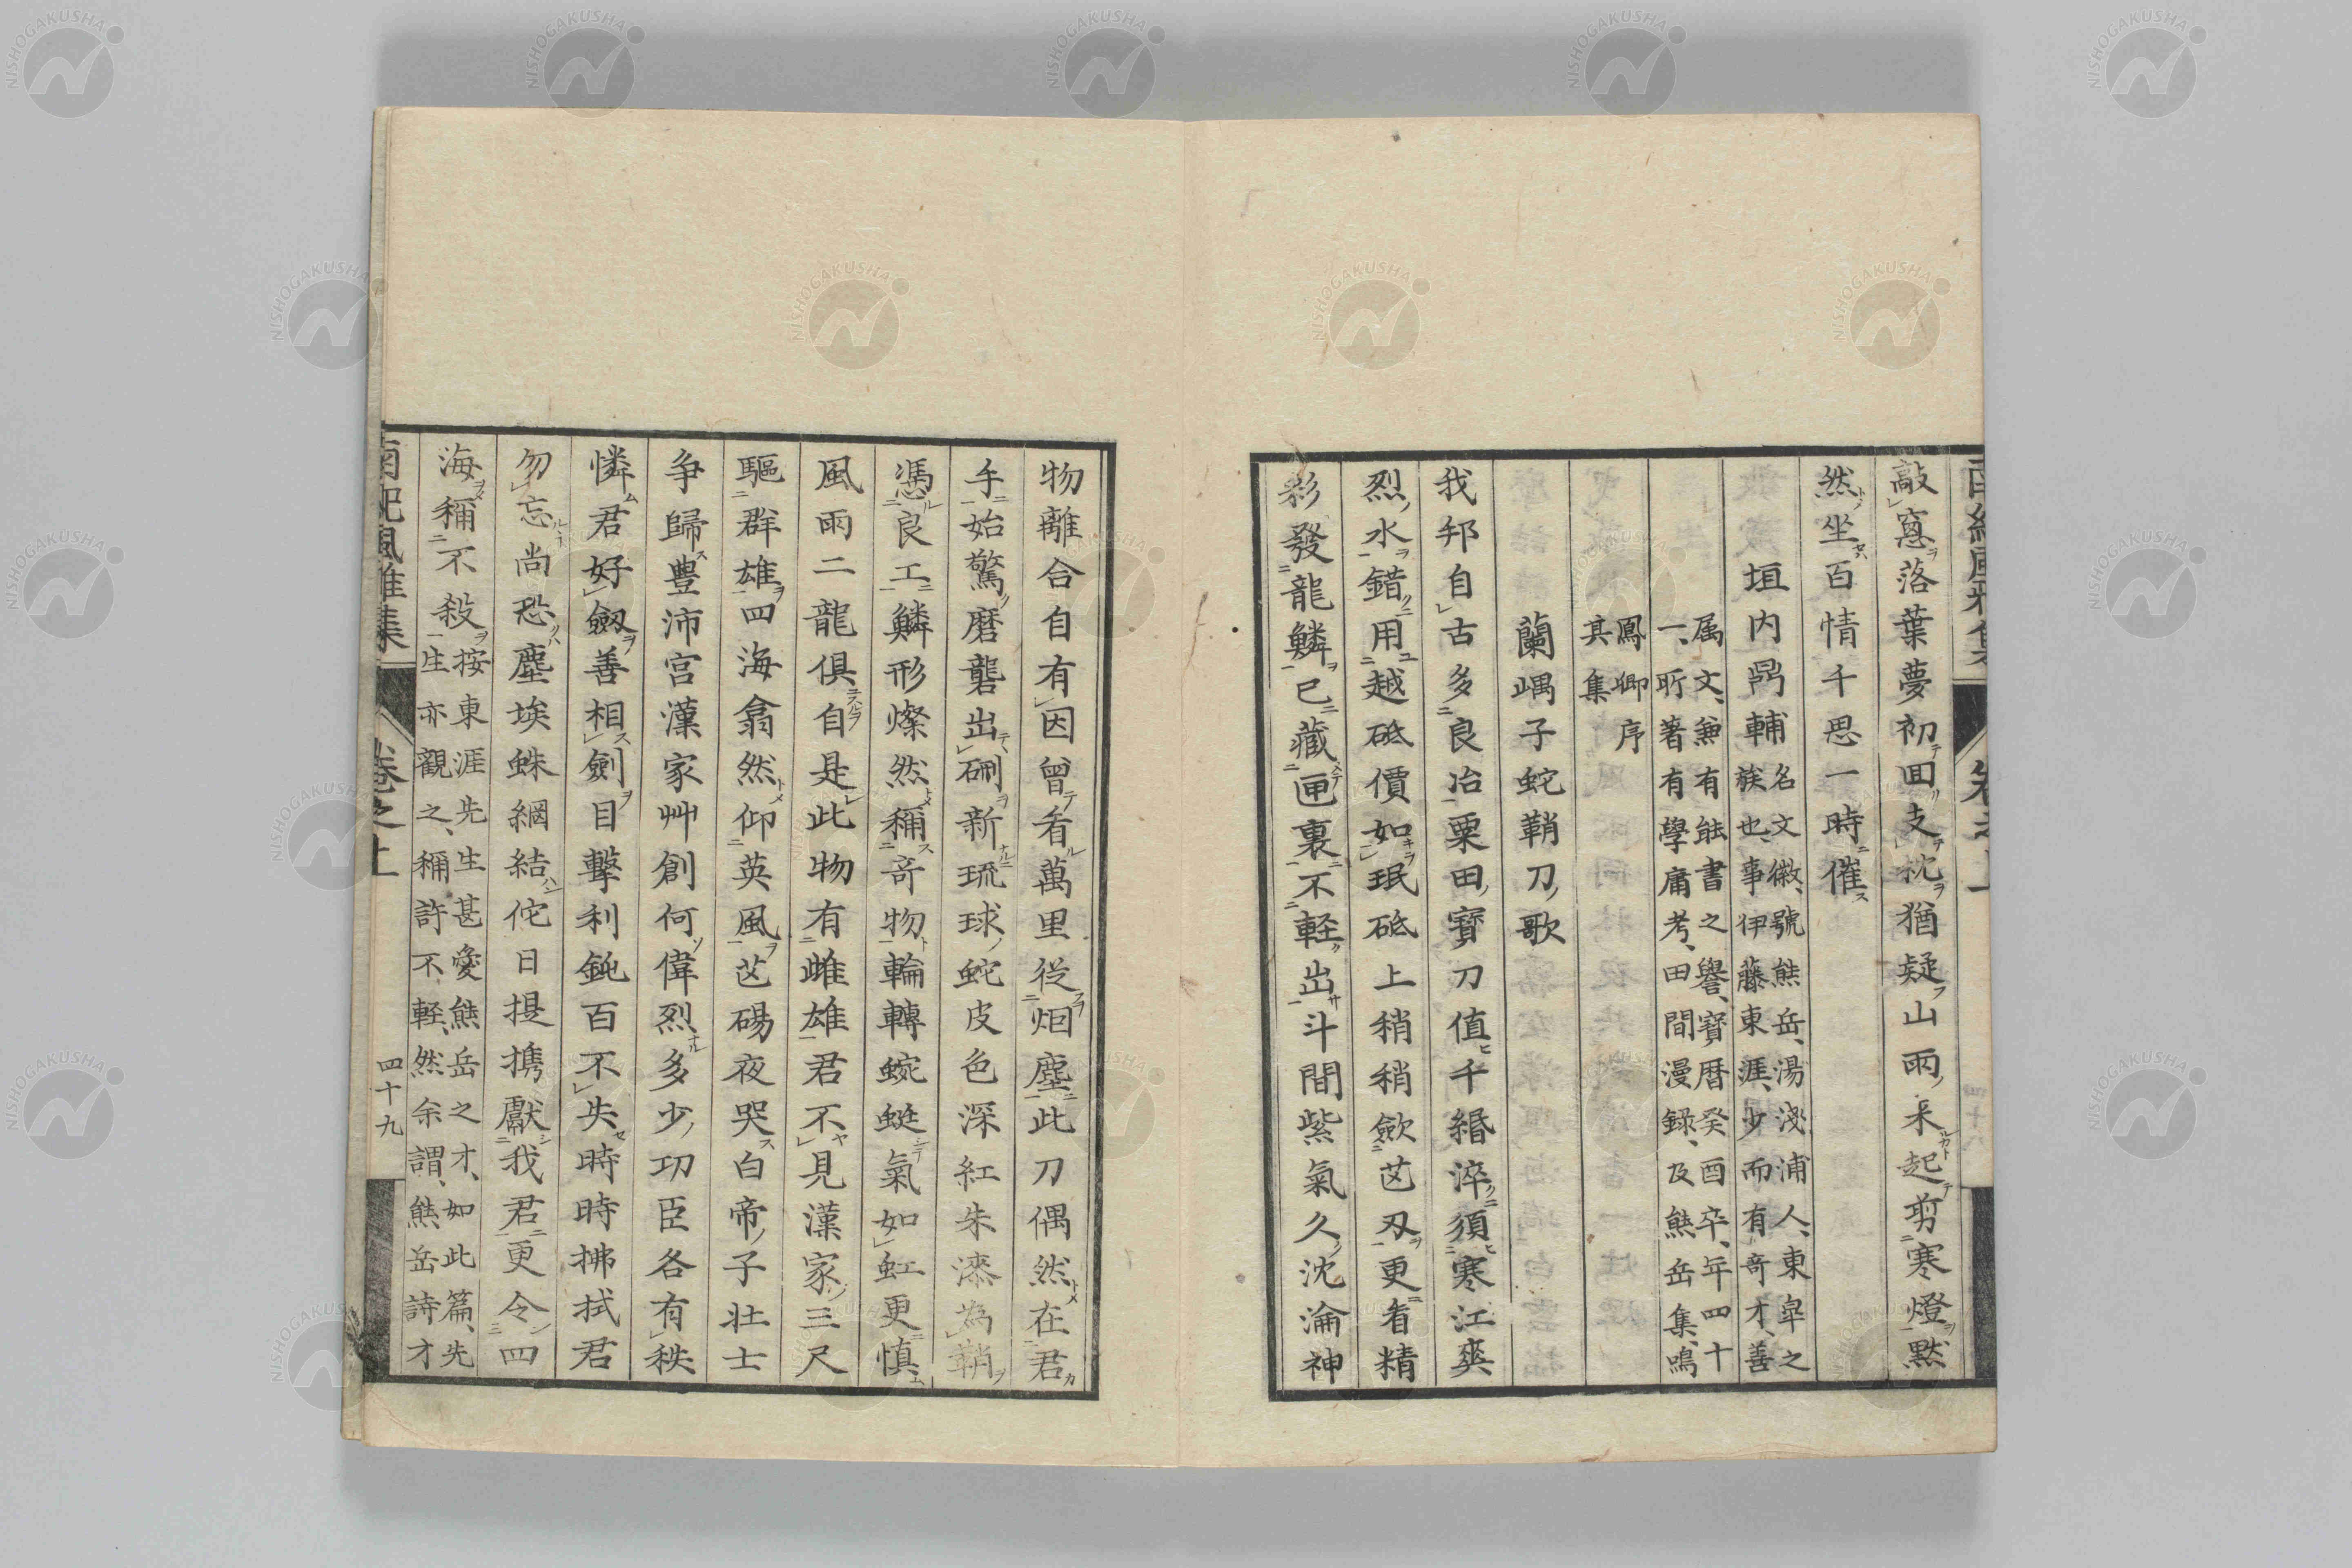 敲窓落葉夢初回支枕猶疑山雨来起剪寒燈黙
然坐百情千思一時催
垣内鼎輔
名文徽、號熊岳、湯淺浦人、東皐之
族也、事伊藤東涯、少而有奇才、善
属文、兼有能書之譽、寶暦癸酉卒、年四十
一、所著有學庸考、田間漫録、及熊岳集、鳴
鳳卿序
其集
蘭嵎子蛇鞘刀歌
我邦自古多良冶粟田寳刀値千緡淬須寒江爽
烈水錯用越砥價如珉砥上稍稍歛芒刄更看精
彩發龍鱗已藏匣裏不軽出斗間紫氣久沈淪神
物離合自有因曾看萬里從烟塵此刀偶然在君
手始驚磨礱出硎新琉球蛇皮色深紅朱漆為鞘
慿良工鱗形燦然稱奇物輪轉蜿蜒氣如虹更慎
風雨二龍俱自是此物有雌雄君不見漢家三尺
驅群雄四海翕然仰英風芒碭夜哭白帝子壮士
争歸豊沛宮漢家艸創何偉烈多少功臣各有秩
憐君好劔善相劍目撃利鈍百不失時時拂拭君
勿忘尚恐塵埃蛛網結佗日提携獻我君更令四
海稱不殺
按東涯先生甚愛熊岳之才、如此篇、先
生亦觀之、稱許不軽、然余謂、熊岳詩才
南紀風雅集
卷之上
四十九